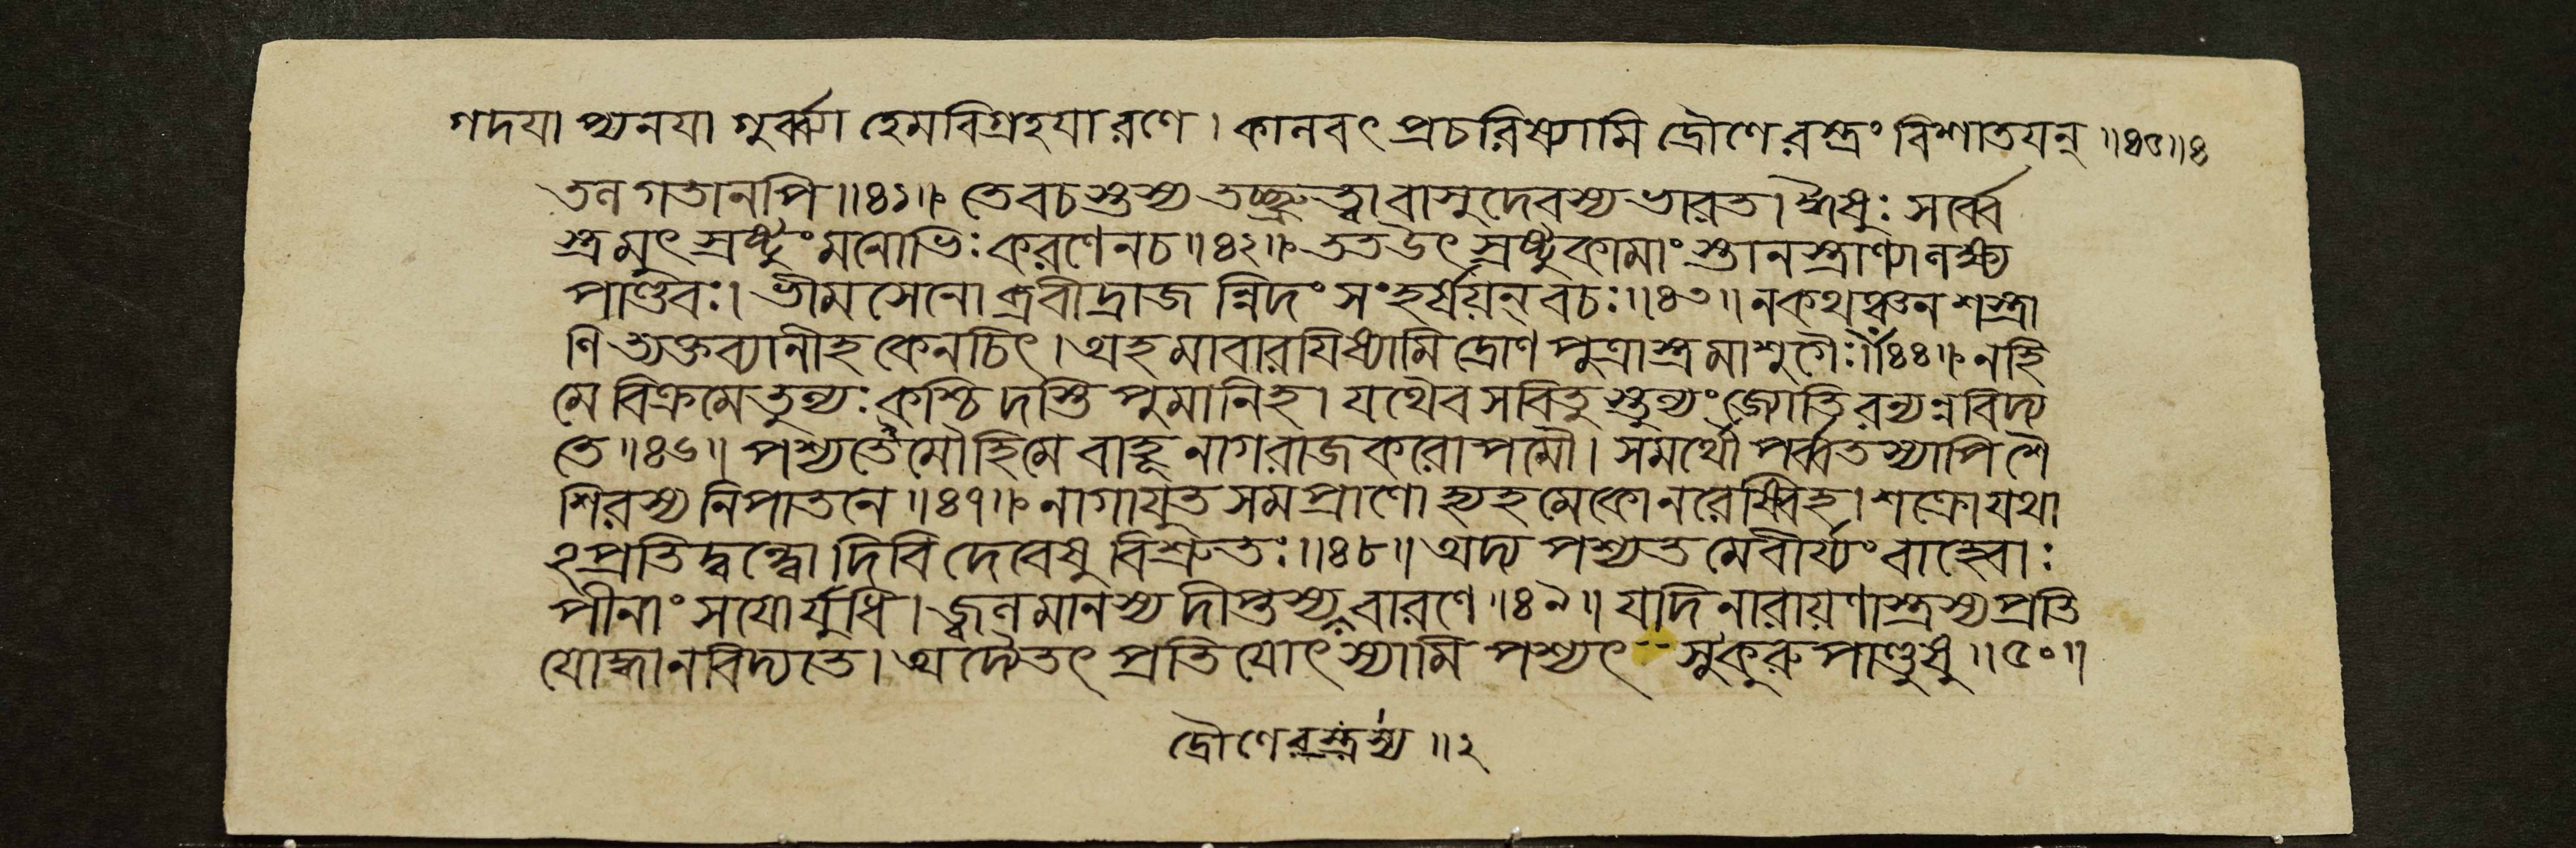 গদযা প্যনযা গুর্ব্ব্যা হেমবিগ্রহযা রণে । কালবৎ প্রচরিষ্যামি দ্রৌণেরস্ত্রং বিশাতযন্ ॥৪৫॥৪
তলগতানপি ॥৪১॥ তে বচস্তস্য তচ্ছ্রুত্বা বাসুদেবস্য ভারত । ঈষুঃ সর্ব্বে
স্ত্রমুৎস্রষ্টুং মনোভিঃ করণেন চ ॥৪২॥ তত উৎস্রষ্টুকামাংস্তানস্ত্রাণ্যালক্ষ্য
পাণ্ডবঃ । ভীমসেনোব্রবীদ্রাজন্নিদং সংহর্ষয়ন্ বচঃ ॥৪৩॥ ন কথঞ্চন শস্ত্রা
ণি ত্যক্তব্যানীহ কেনচিৎ । অহমাবারযিষ্যামি দ্রোণপুত্রাস্ত্রমাশুগৈঃ ॥৪৪॥ ন হি
মে বিক্রমে তুল্যঃ কশ্চিদস্তি পুমানিহ । যথৈব সবিতুস্তুল্যং জ্যোতিরন্যন্ন বিদ্য
তে ॥৪৬॥ পশ্যতেমৌ হি মে বাহূ নাগরাজকরোপমৌ । সমর্থৌ পর্ব্বতস্যাপি শৈ
শিরস্য নিপাতনে ॥৪৭॥ নাগাযুতসমপ্রাণো হ্যহমেকো নরেষ্বিহ । শক্রো যথা
২প্রতিদ্বন্দ্বো দিবি দেবেষু বিশ্রুতঃ ॥৪৮॥ অদ্য পশ্যত মে বীর্য্যং বাহ্বোঃ
পীনাংসযোর্যুধি । জ্বলমানস্য দীপ্তস্য বারণে ॥৪৯॥ যদি নারাযণাস্ত্রস্য প্রতি
যোদ্ধা ন বিদ্যতে । অদ্যৈতৎ প্রতিযোৎস্যামি পশ্যৎ--সু কুরুপাণ্ডুষু ॥৫০॥
দ্রৌণেরস্ত্রস্য ॥২